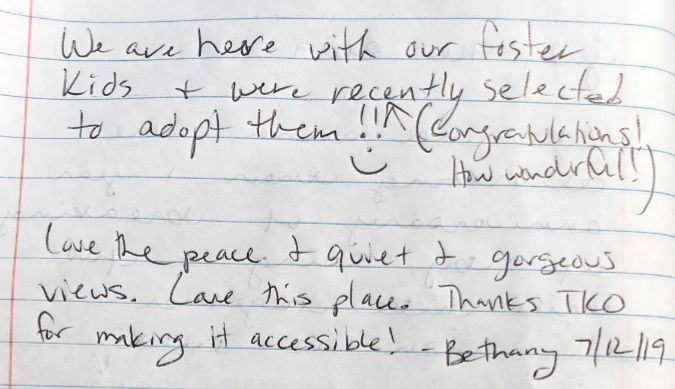 We are here with our foster
Kids + were recently selected
to adopt them!! (Congratulations!
How wonderful!)
Love the peace & quiet & gorgeous
views. Love this place. Thanks TKO
for making it accessible! - Bethany 7/12/19